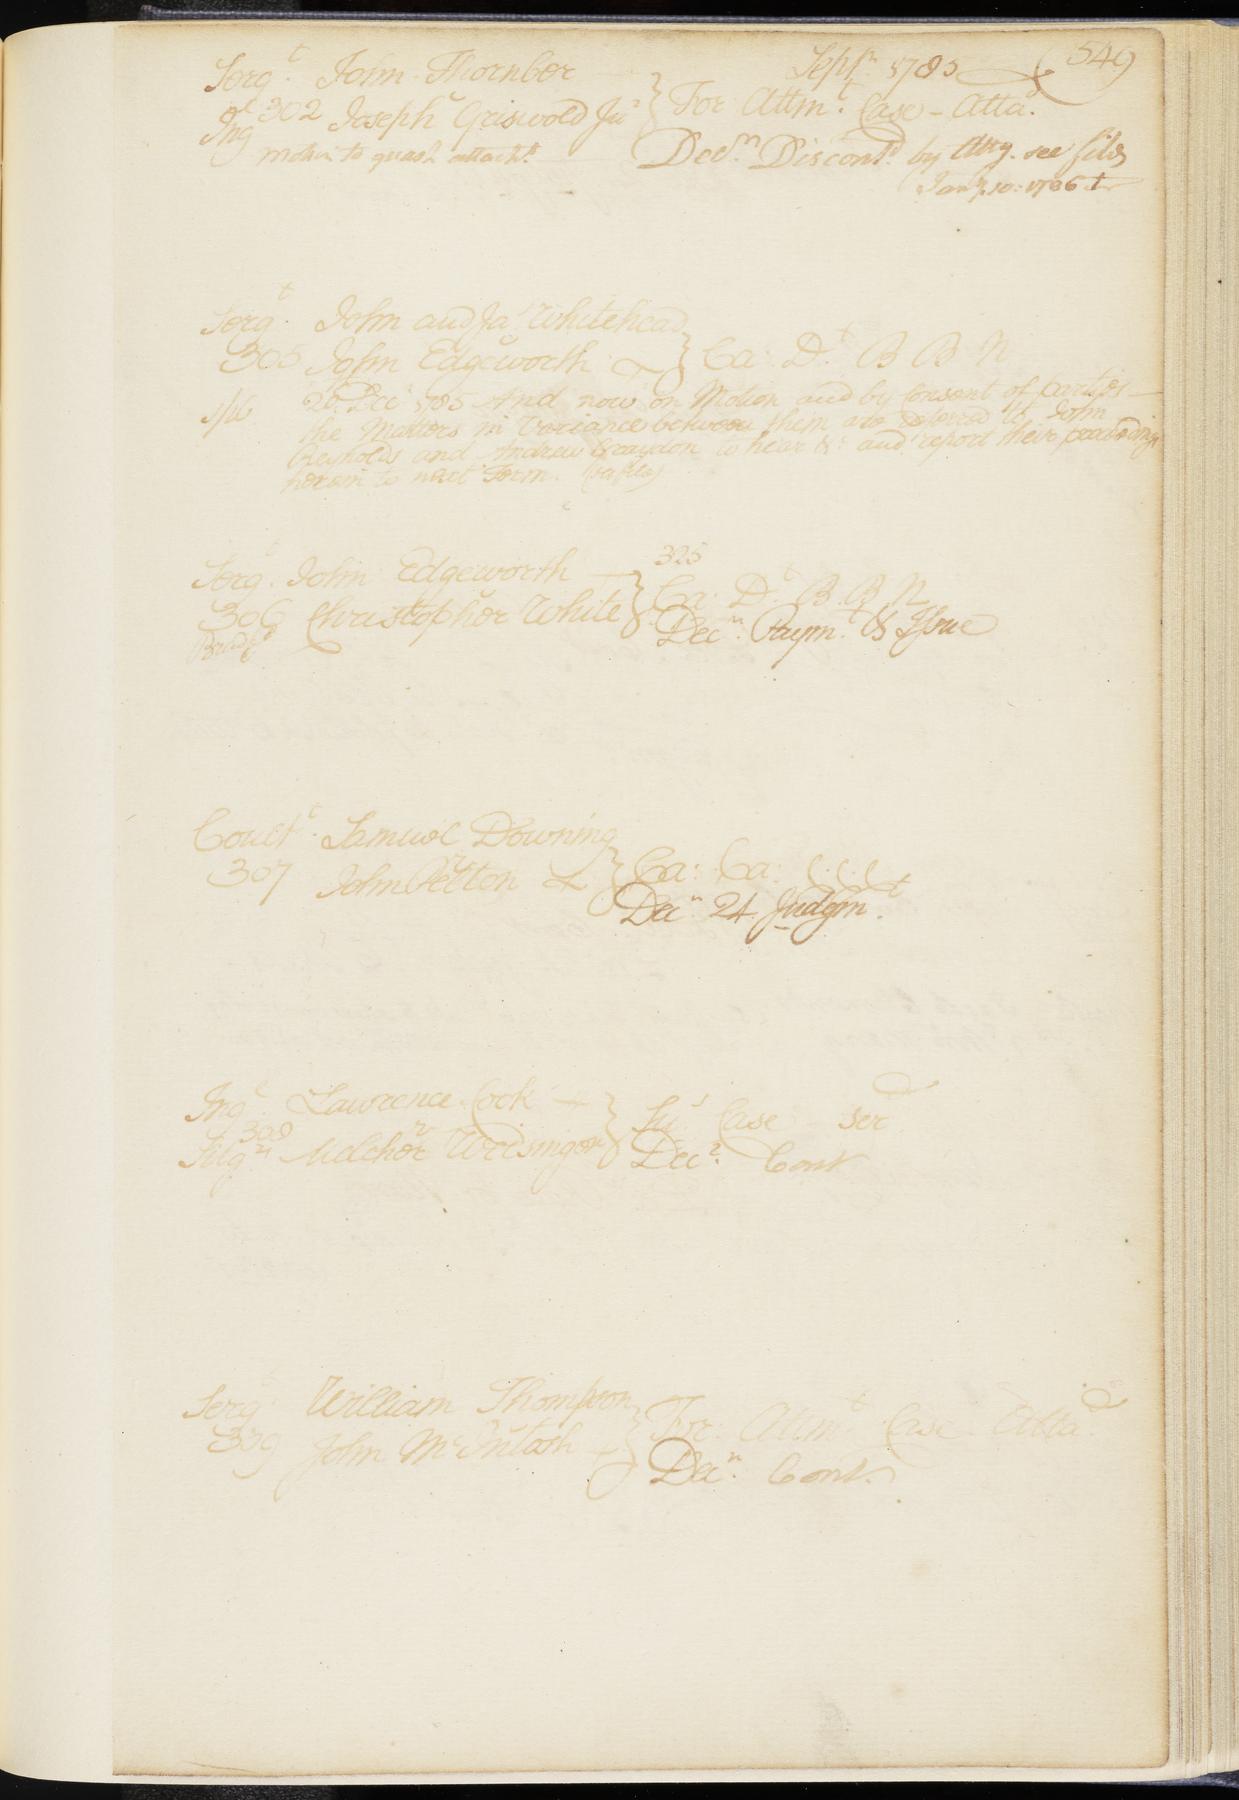 Septr. 1785 (549)
Sergt. John Thornber
302 Joseph Griswold Junr } For Attmt. Case - Attad.
Ing motion to quash attachmt Decr. Discontd. by Atty. see file
Jany. 10: 1786
Sergt. John and Jas Whitehead
305 John Edgeworth } Ca: D.t B B N
26 Decr 1785 And now on Motion and by Consent of parties
the Matters in Variance between them are refered to John
Reynolds and Andrew Graydon to hear &c and report their proceedings
herein to next Term.
Sergt. John Edgeworth 325
306 Christopher White } Ca: D.t B B N
Bradfd Decr. Paymt. & Issue
Coultt. Samuel Downing
307 John Pelton } Ca: Ca: C.C.C
Decr 24. Judgmt.
Ing Lawrence Cook
308 } Sus Case serd
Melcher Decr. Cont
Sergt William Thompson
309 John McIntosh } For: Attmt. Case. Attad.
Decr. Cont.